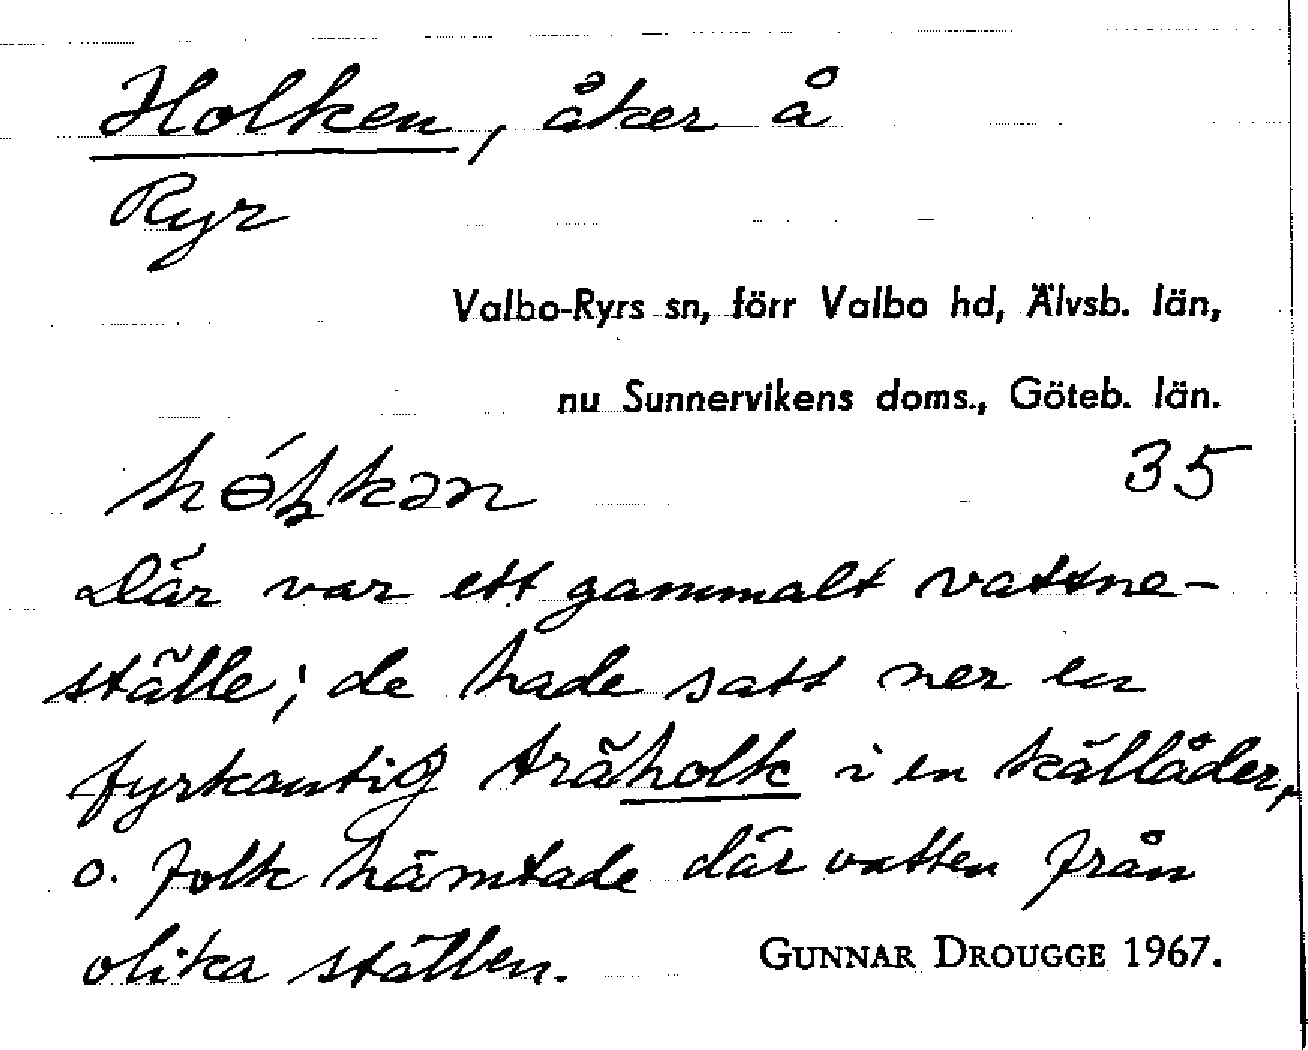 Holken, åker å
Ryr
Valbo-Ryrs sn, förr Valbo hd, Älvsb. län,
nu Sunnervikens doms., Göteb. län.
35
Där var ett gammalt vattne-
ställe; de hade satt ner en
fyrkantig träholk i en källåder,
o. folk hämtade där vatten från
olika ställen.
GUNNAR DROUGGE 1967.